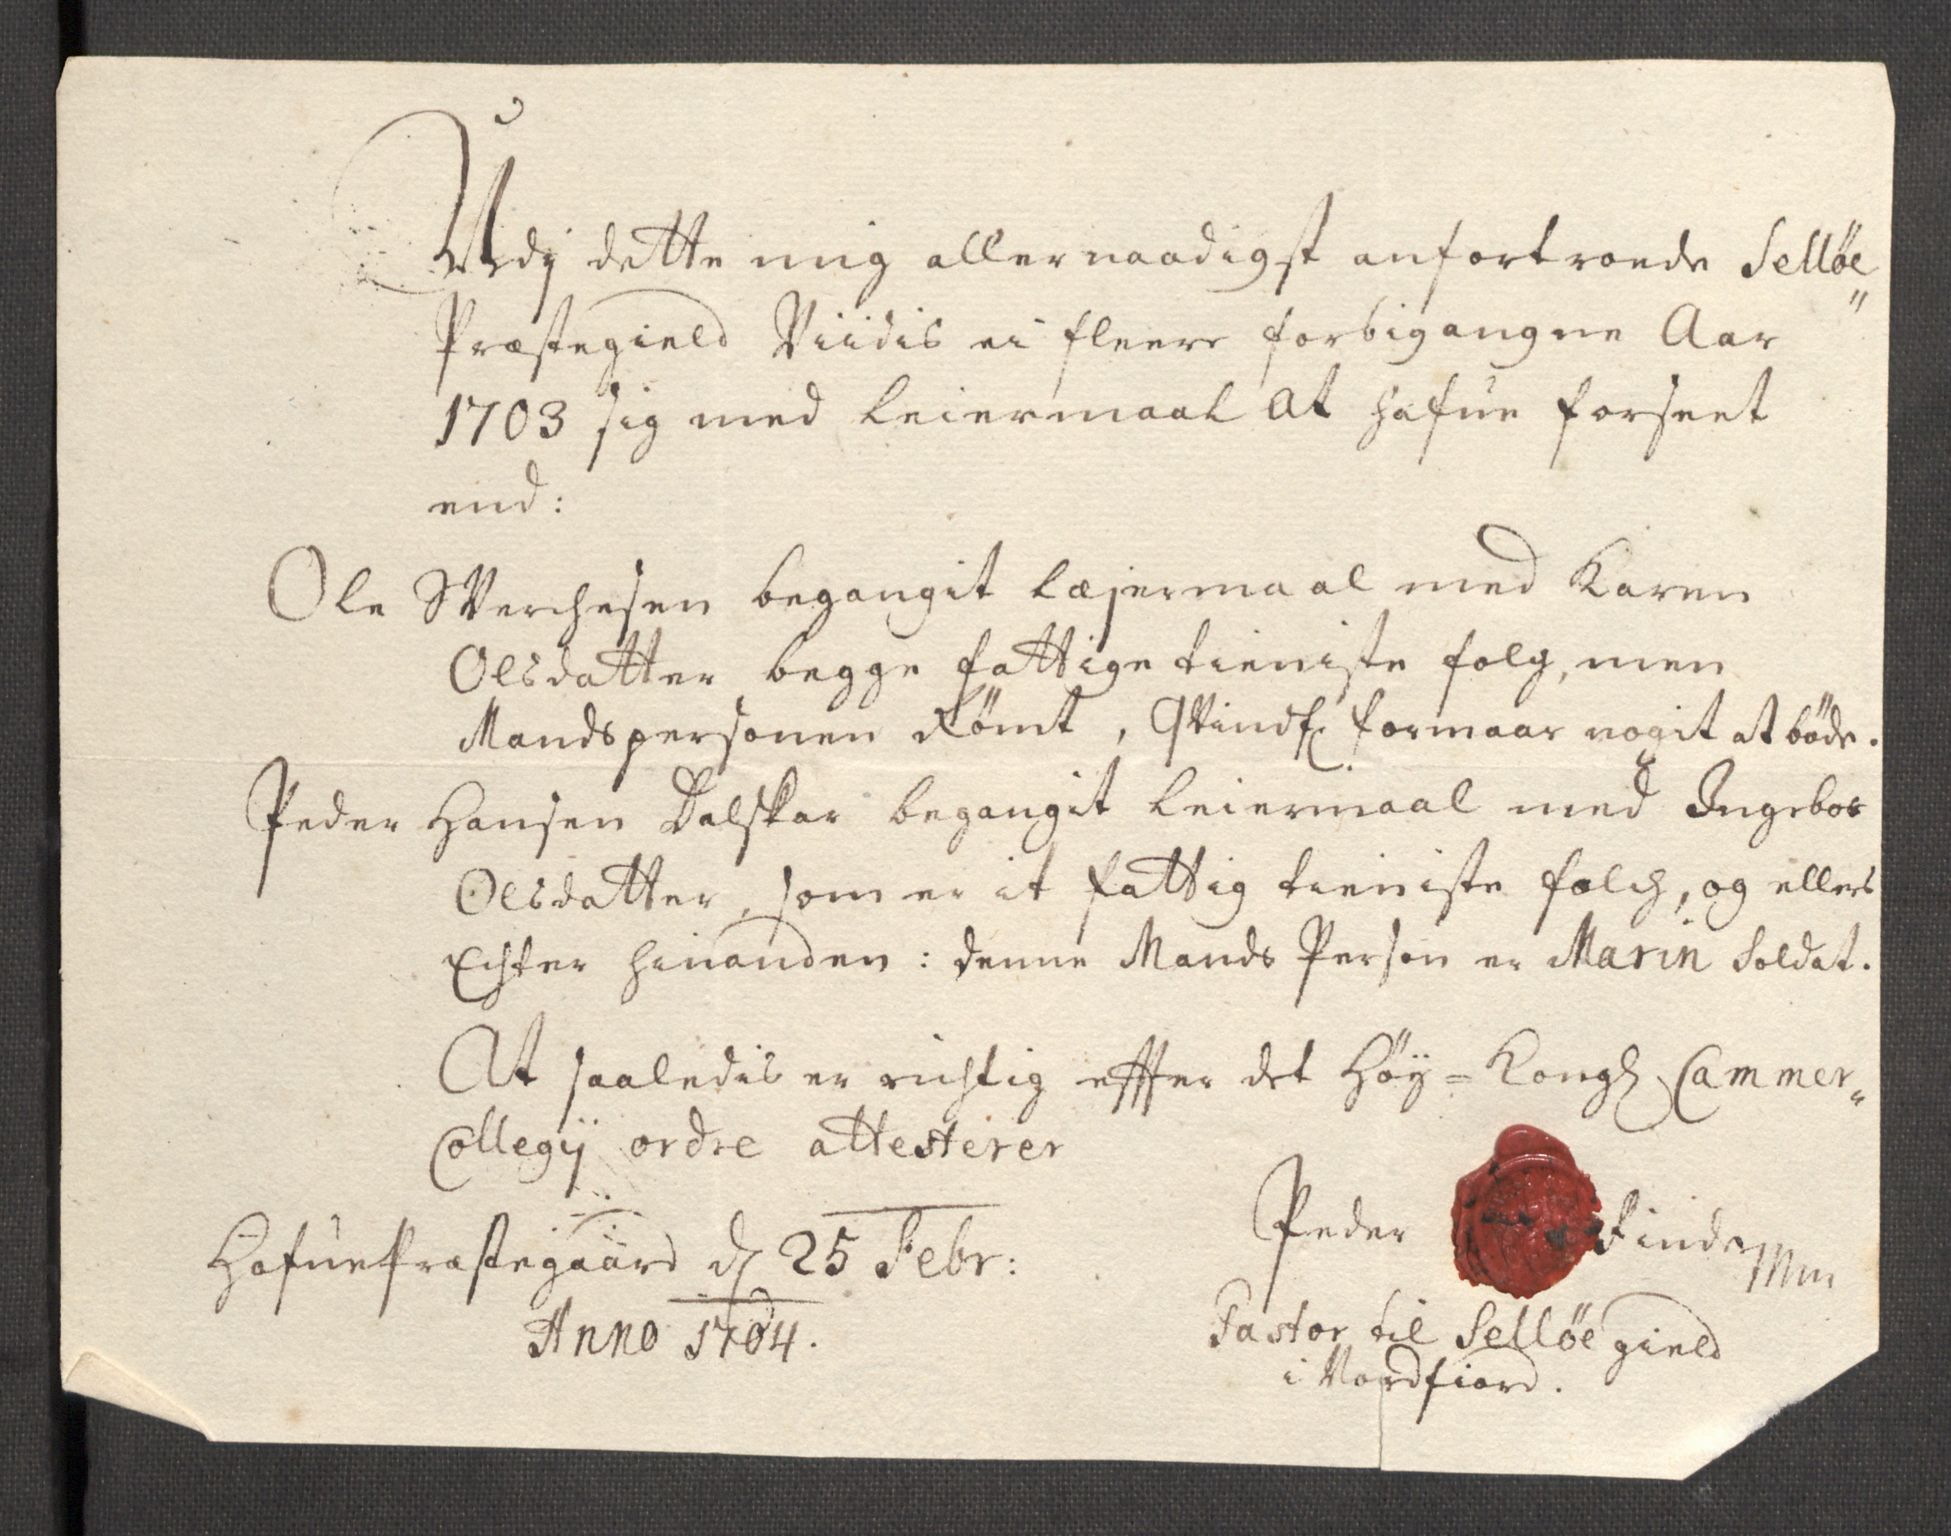 Udj dette mig allernaadigst anfortroede Selløe
Præstegield Viidis ei fleere forbigangne Aar
1703 sig med Leiermaal At hafue forseet
end:
Ole SVerchesen begangit Læjermaal med Karen
Olsdatter begge fattige tieniste folch, men
Mandspersonen Rømt, QVindf: formaar nogit at bøde.
Peder Hansen Dalskar begangit Leiermaal med Ingebor
Olsdatter, som er it fattig tieniste folch, og ellers
Echter hinanden: denne Mands Person er Marin Soldat.
At saaledis er rigtig effter det Høy= Kongl Cammer„
Collegij ordre attesterer
HafuePræstegaard d 25 Febr:
Anno 1704.
Peder Finde
Pastor til Selløe gield
i Nordfiord.